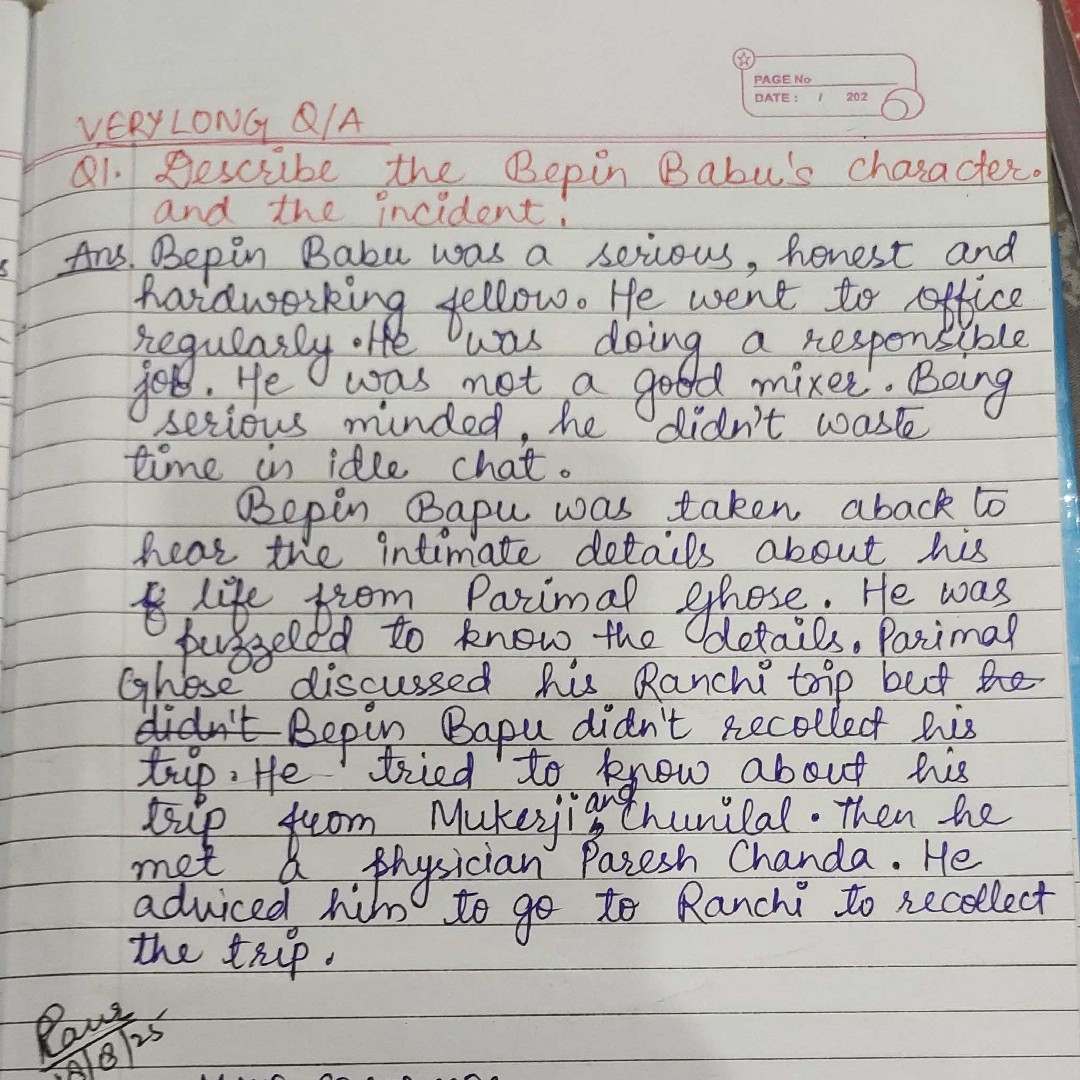 PAGE No
DATE: / 202
VERY LONG Q/A
Q1. Describe the Bepin Babu's character.
and the incident.
Ans. Bepin Babu was a serious, honest and
hardworking fellow. He went to office
regularly. He was doing a responsible
job. He was not a good mixer. Being
serious minded, he didn't waste
time in idle chat.
Bepin Bapu was taken aback to
hear the intimate details about his
life from Parimal Ghose. He was
puzzeled to know the details. Parimal
Ghose discussed his Ranchi trip but he
didn't Bepin Bapu didn't recollect his
trip. He tried to know about his
trip from Mukerji and Chunilal. Then he
met a physician Paresh Chanda. He
adviced him to go to Ranchi to recollect
the trip.
8/25